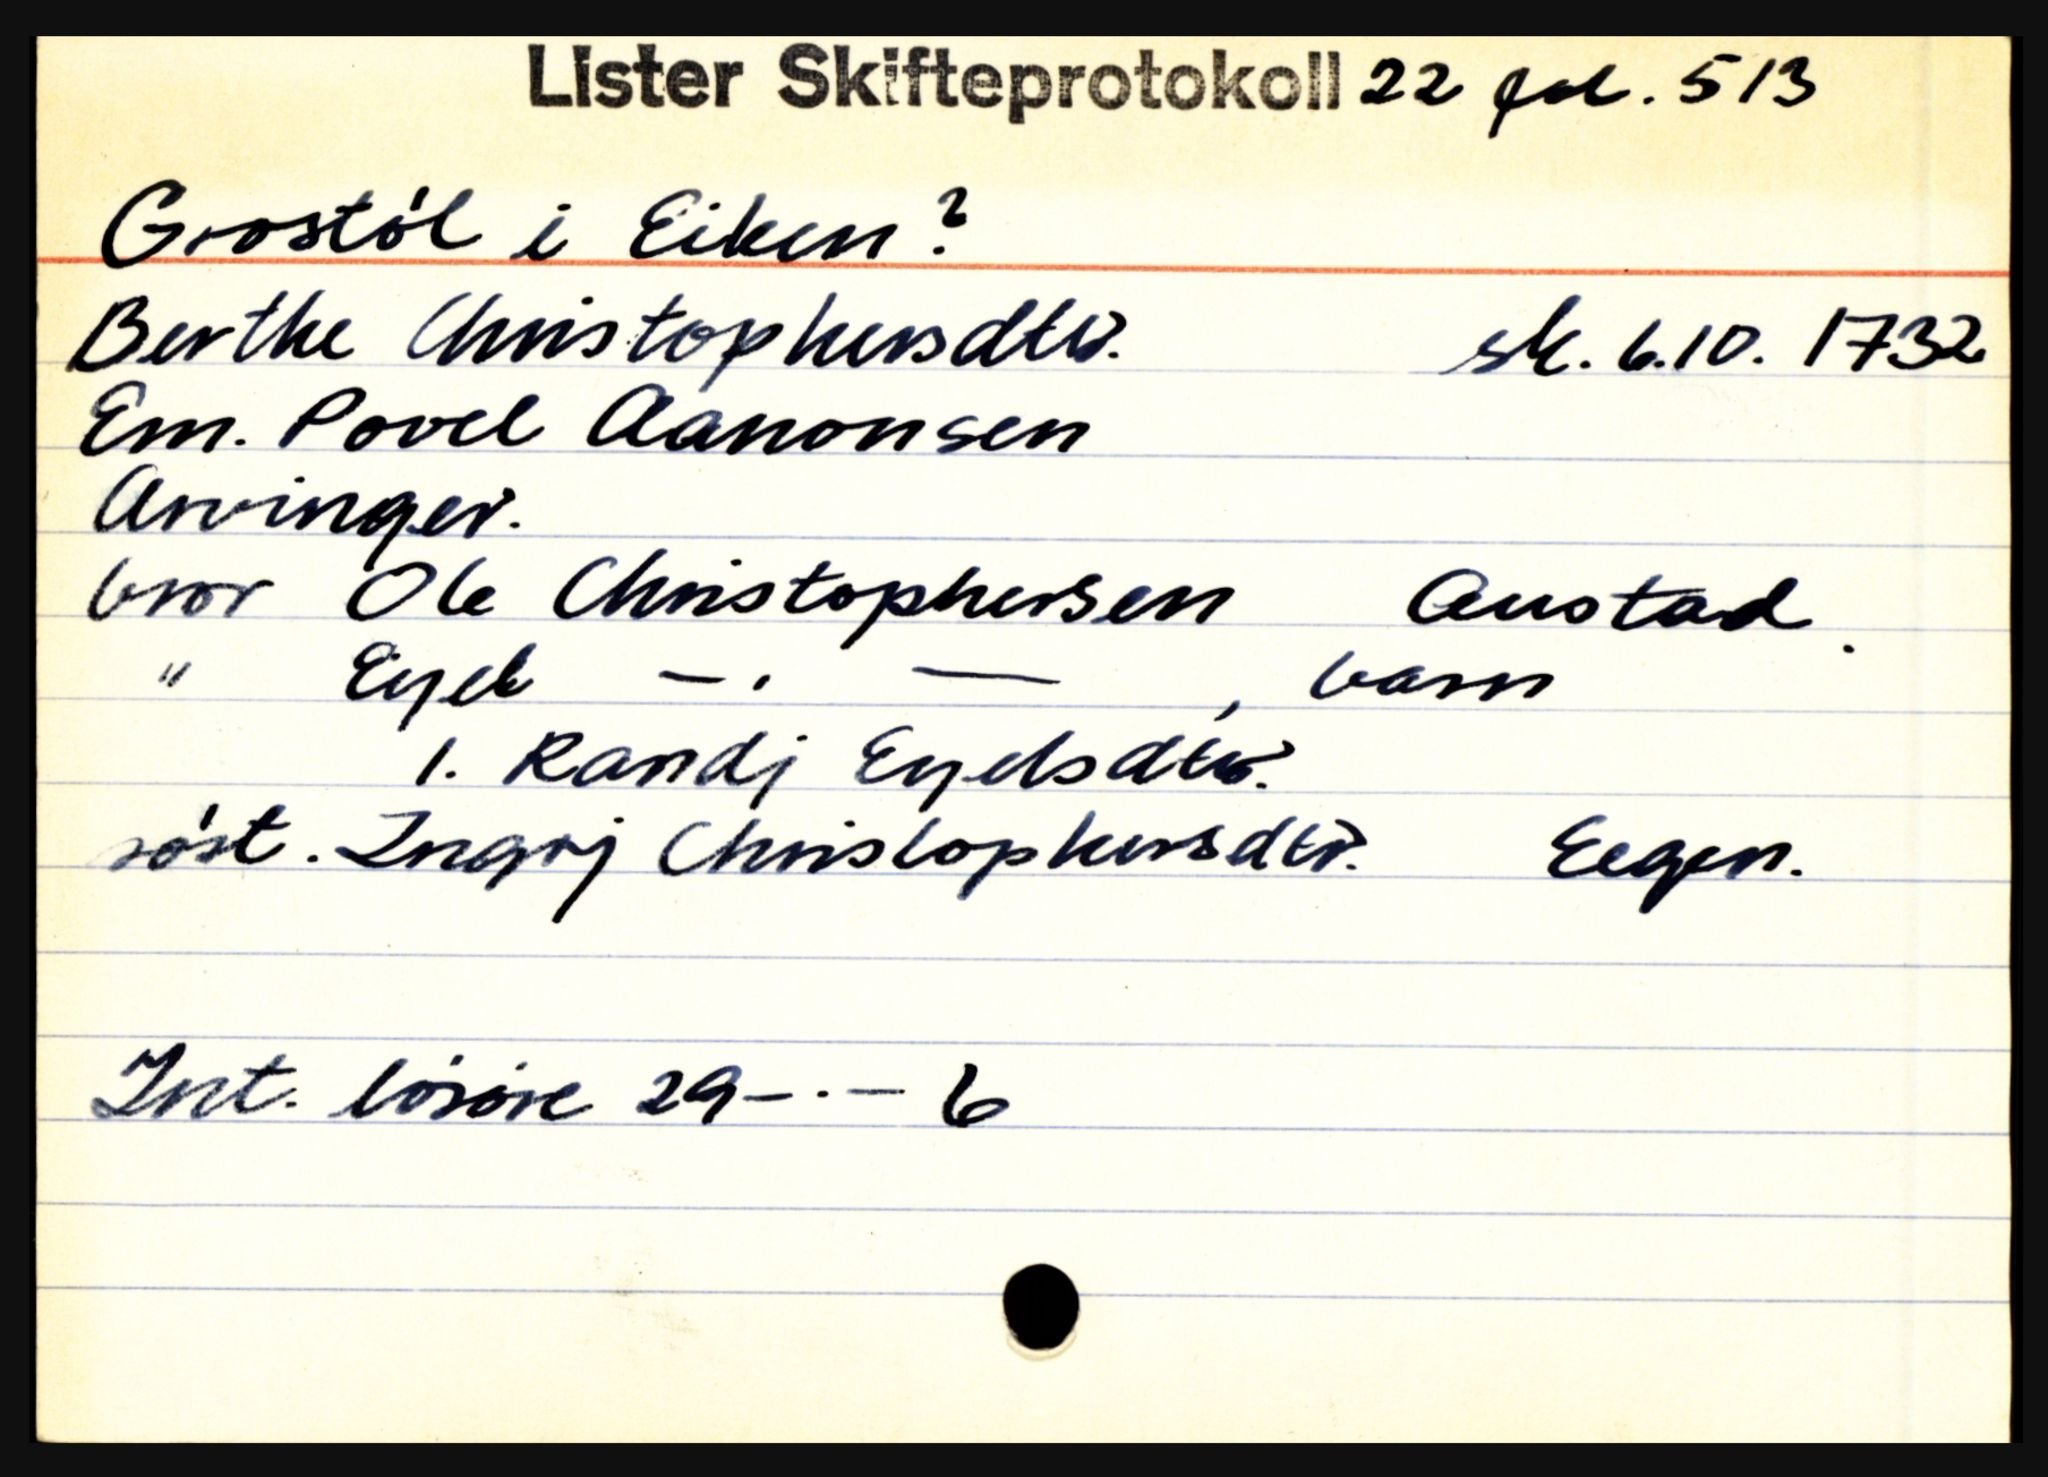 Lister Skifteprotokoll 22 fol. 513
Grostöl i Eiken?
Berthe Christophersdtr. sk. 6.10. 1732
Em. Povel Aanonsen
Arvinger.
bror Ole Christophersen Austad.
" Eyel — . — , barn
1. Randj Eyelsdtr.
söst. Ingrj Christophersdtr. Eegen.
Int. lösöre 29 - . - 6